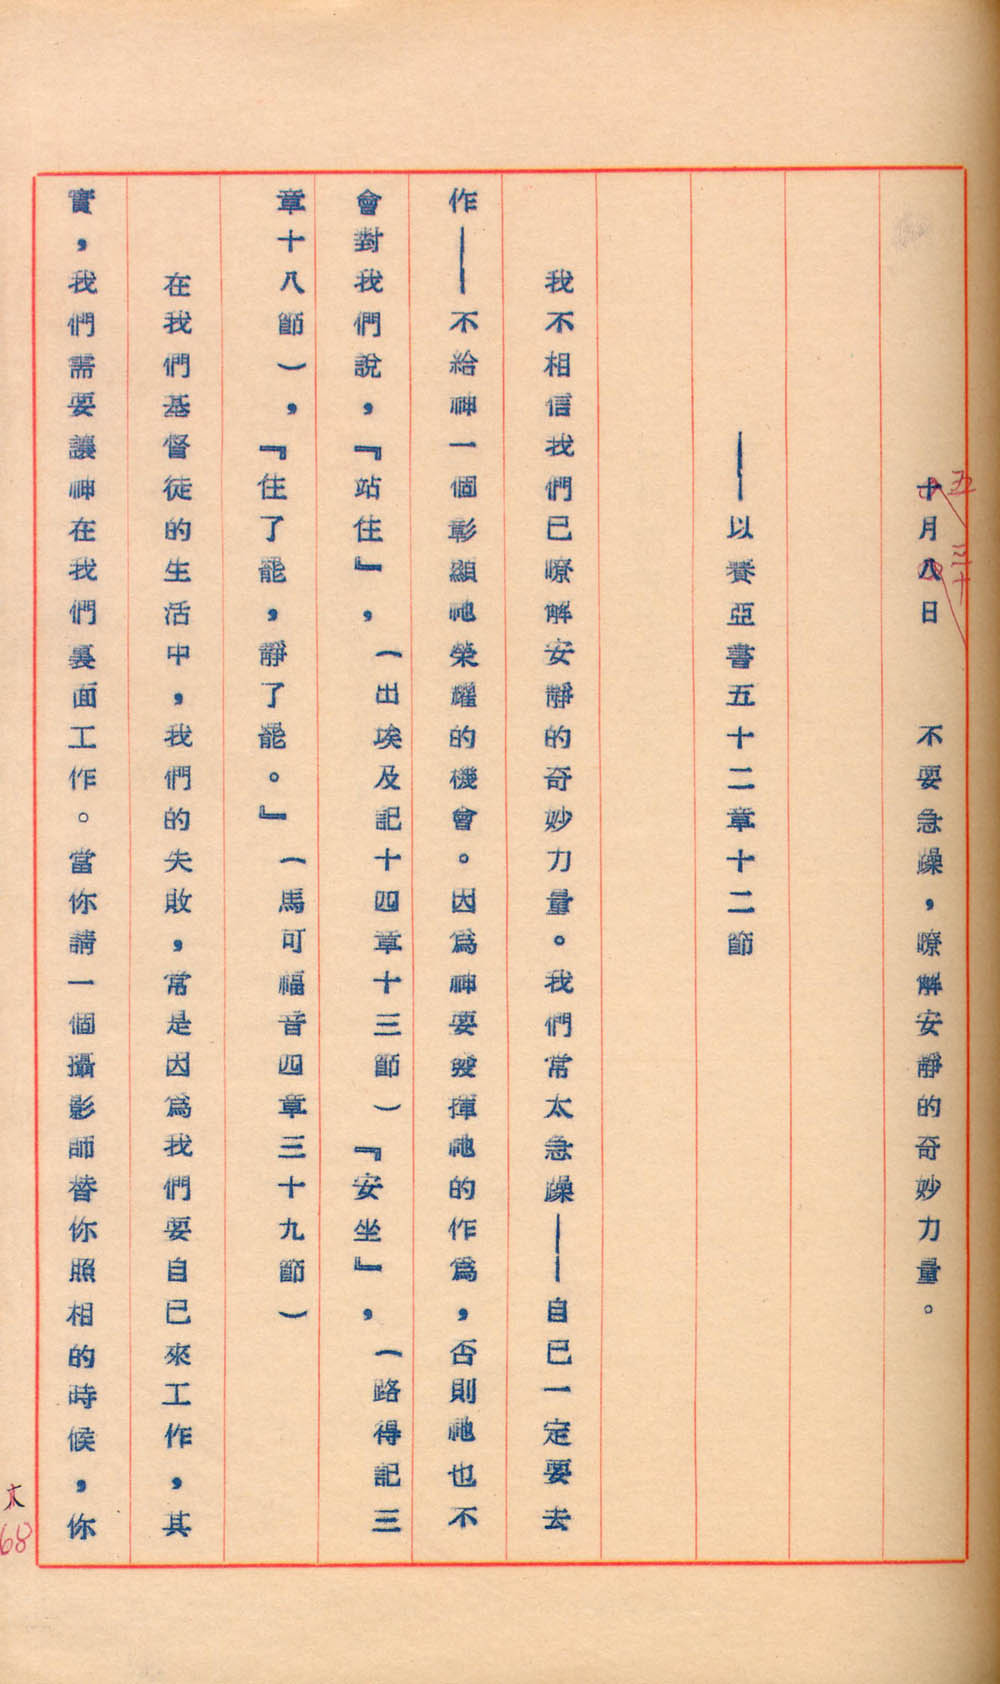 十月八日　　不要急躁，嘹解安靜的奇妙力量。
五
三十
——以賽亞書五十二章十二節
我不相信我們已嘹解安靜的奇妙力量。我們常太急躁——自已一定要去
作——不給神一個彰顯祂榮耀的機會。因為神要發揮祂的作為，否則祂也不
會對我們說，『站住』，（出埃及記十四章十三節）『安坐』，（路得記三
章十八節），『住了罷，靜了罷。』（馬可福音四章三十九節）
在我們基督徒的生活中，我們的失敗，常是因為我們要自已來工作，其
實，我們需要讓神在我們裏面工作。當你請一個攝影師替你照相的時候，你
68